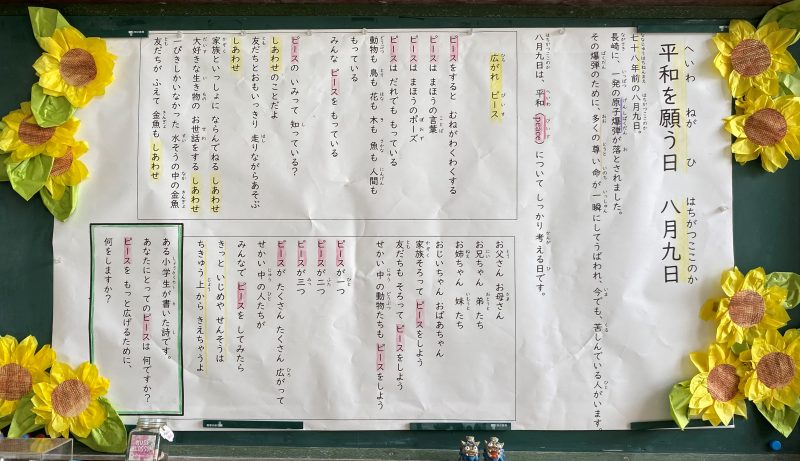 平和を願う日　八月九日
七十八年前の八月九日。
長崎に、一発の原子爆弾が落とされました。
その爆弾のために、多くの尊い命が一瞬にしてうばわれ、今でも、苦しんでいる人がいます。
八月九日は、平和（ピース）について しっかり考える日です。
広がれ ピース
ピースをすると むねがわくわくする
ピースは まほうの言葉
ピースは まほうのポーズ
ピースは だれでも もっている
動物も 鳥も 花も 木も 魚も 人間も
もっている
みんな ピースを もっている
ピースの いみって 知っている？
しあわせのことだよ
友だちとおもいっきり 走りながらあそぶ
しあわせ
家族といっしょに ならんでねる しあわせ
大好きな生き物の お世話をする しあわせ
一ぴきしかいなかった 水そうの中の金魚
友だちが ふえて 金魚も しあわせ
お父さん お母さん
お兄ちゃん 弟たち
お姉ちゃん 妹たち
おじいちゃん おばあちゃん
家族そろって ピースをしよう
友だちも そろって ピースをしよう
せかい中の 動物たちも ピースをしよう
ピースが 一つ
ピースが 二つ
ピースが 三つ
ピースが たくさん たくさん 広がって
せかい中の 人たちが
みんなで ピースを してみたら
きっと いじめや せんそうは
ちきゅう上から きえちゃうよ
ある小学生が書いた詩です。
あなたにとってのピースは 何ですか？
ピースを もっと広げるために、
何をしますか？